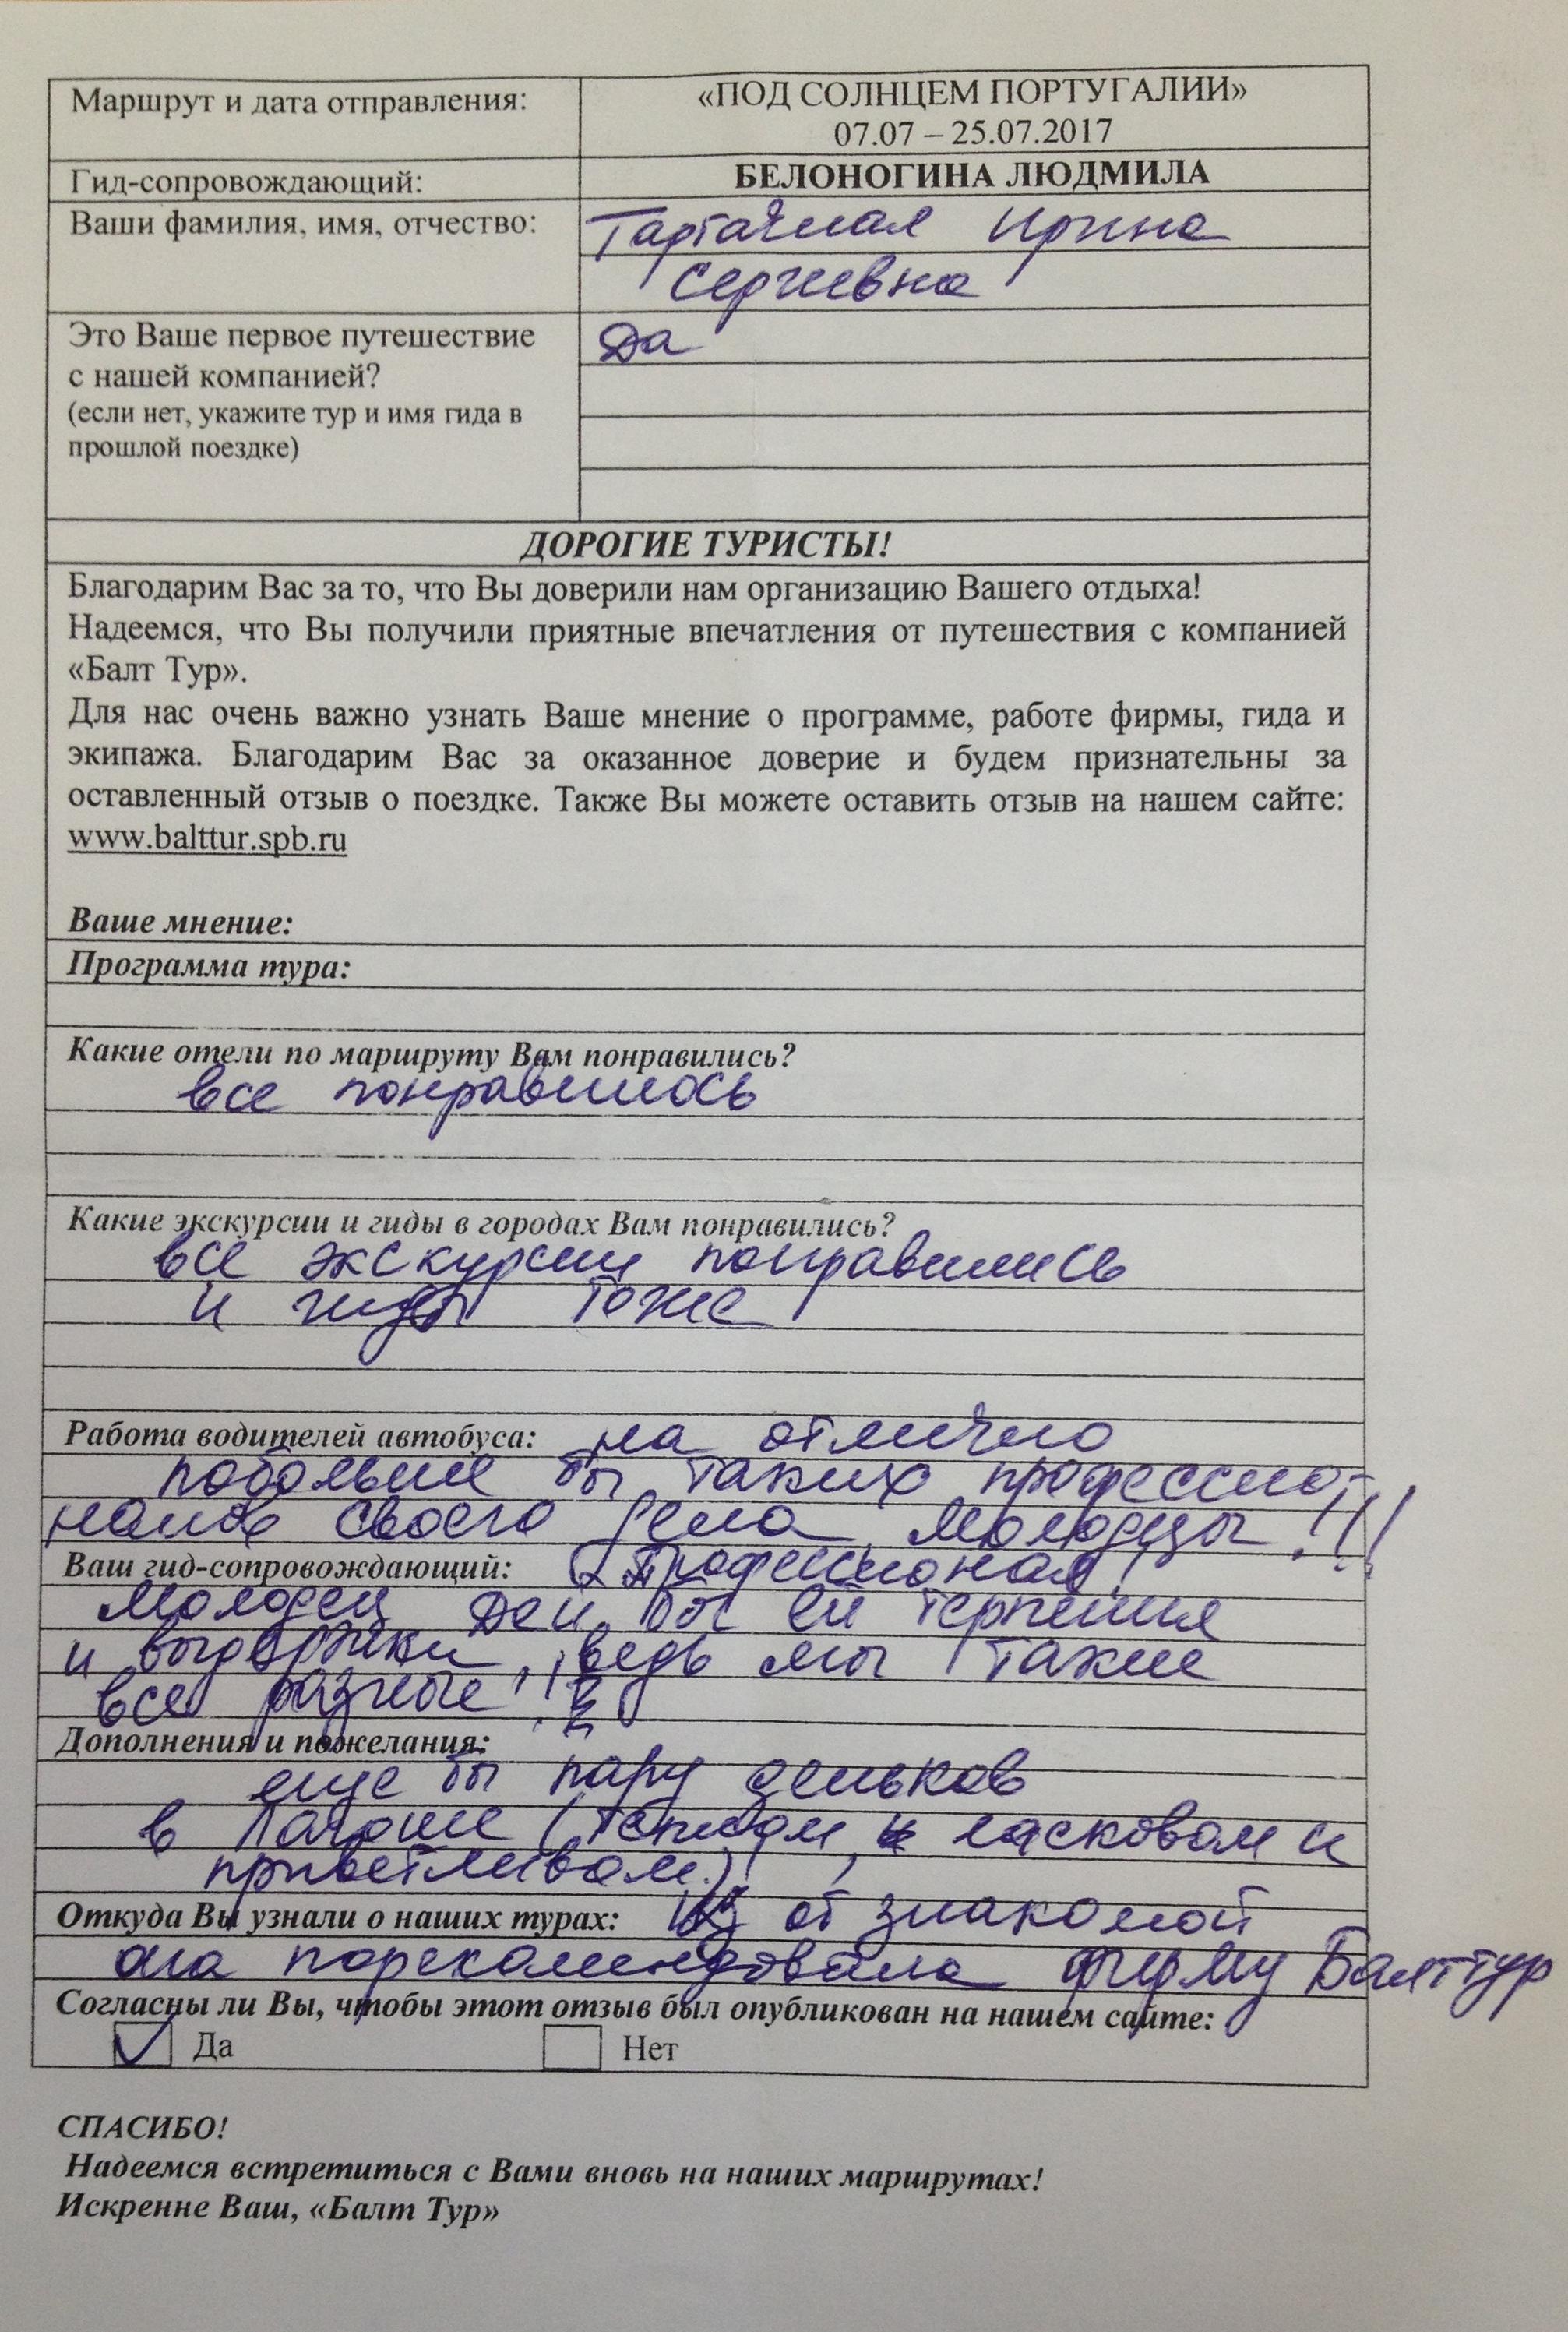 Маршрут и дата отправления:
«ПОД СОЛНЦЕМ ПОРТУГАЛИИ»
07.07 – 25.07.2017
Гид-сопровождающий:
БЕЛОНОГИНА ЛЮДМИЛА
Ваши фамилия, имя, отчество:
Ирина
Сергеевна
Это Ваше первое путешествие
с нашей компанией?
(если нет, укажите тур и имя гида в
прошлой поездке)
Да
ДОРОГИЕ ТУРИСТЫ!
Благодарим Вас за то, что Вы доверили нам организацию Вашего отдыха!
Надеемся, что Вы получили приятные впечатления от путешествия с компанией
«Балт Тур».
Для нас очень важно узнать Ваше мнение о программе, работе фирмы, гида и
экипажа. Благодарим Вас за оказанное доверие и будем признательны за
оставленный отзыв о поездке. Также Вы можете оставить отзыв на нашем сайте:
www.balttur.spb.ru
Ваше мнение:
Программа тура:
Какие отели по маршруту Вам понравились?
все понравилось
Какие экскурсии и гиды в городах Вам понравились?
все экскурсии понравились
и гиды тоже
Работа водителей автобуса: на отлично
побольше бы таких профессио-
налов своего дела, молодцы!!!
Ваш гид-сопровождающий: профессионал!
молодец Дай бог ей терпения
и выдержки, ведь мы такие
все разные!!!
Дополнения и пожелания:
еще бы пару деньков
в (теплом, ласковом и
приветливом)!
Откуда Вы узнали о наших турах: от знакомой
она порекомендовала фирму Балттур
Согласны ли Вы, чтобы этот отзыв был опубликован на нашем сайте:
Да Нет
СПАСИБО!
Надеемся встретиться с Вами вновь на наших маршрутах!
Искренне Ваш, «Балт Тур»